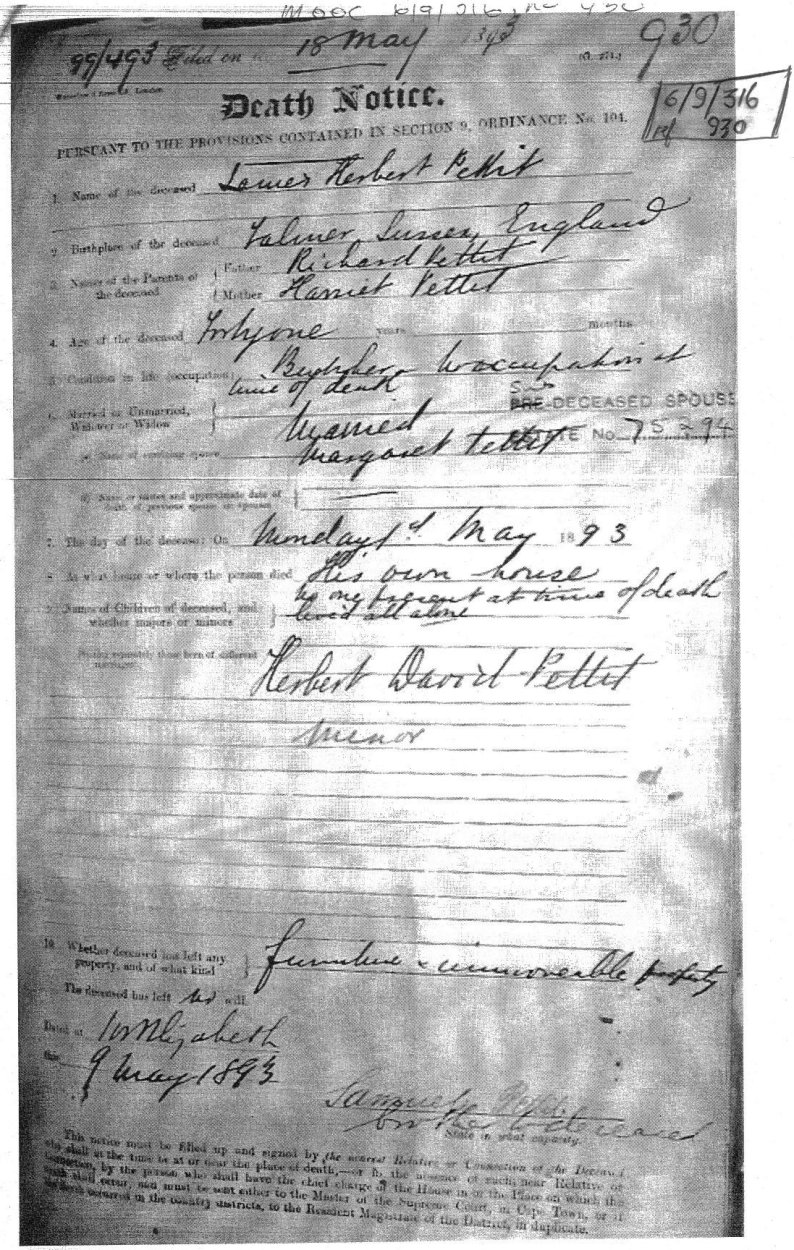 MOOC 6/9/316, no 930
99/493 Filed on 18 May 1893
930
6/9/316
ref 930
Death Notice.
PURSUANT TO THE PROVISIONS CONTAINED IN SECTION 9, ORDINANCE No. 104.
1. Name of the deceased James Herbert Pettit
2. Birthplace of the deceased Falmer, Sussex, England
3. Names of the Parents of the deceased
Father Richard Pettit
Mother Harriet Pettit
4. Age of the deceased Fortyone years months
5. Condition in life (occupation) Butcher No occupation at
time of death
6. Married or Unmarried, Widower or Widow Married
PRE-DECEASED SPOUSE
a) Name of surviving spouse Margaret Pettit
ESTATE No 75294
b) Name or names and approximate date of death of previous spouse or spouses
7. The day of the decease: On Monday 1st May 1893
8. At what house or where the person died His own house
no one present at time of death
lived all alone
9. Names of Children of deceased, and whether majors or minors
Herbert David Pettit
Minor
10. Whether deceased has left any property, and of what kind furniture & immoveable property
The deceased has left no will.
Dated at Port Elizabeth
this 9 May 1893
Samuel Pettit
brother to deceased
State in what capacity.
This notice must be filled up and signed by the nearest Relative or Connection of the Deceased
who shall at the time be at or near the place of death,—or in the absence of such near Relative or
Connection, by the person who shall have the chief charge of the House in or the Place on which the
death shall occur, and must be sent either to the Master of the Supreme Court, in Cape Town, or if
the death occurred in the country districts, to the Resident Magistrate of the District, in duplicate.